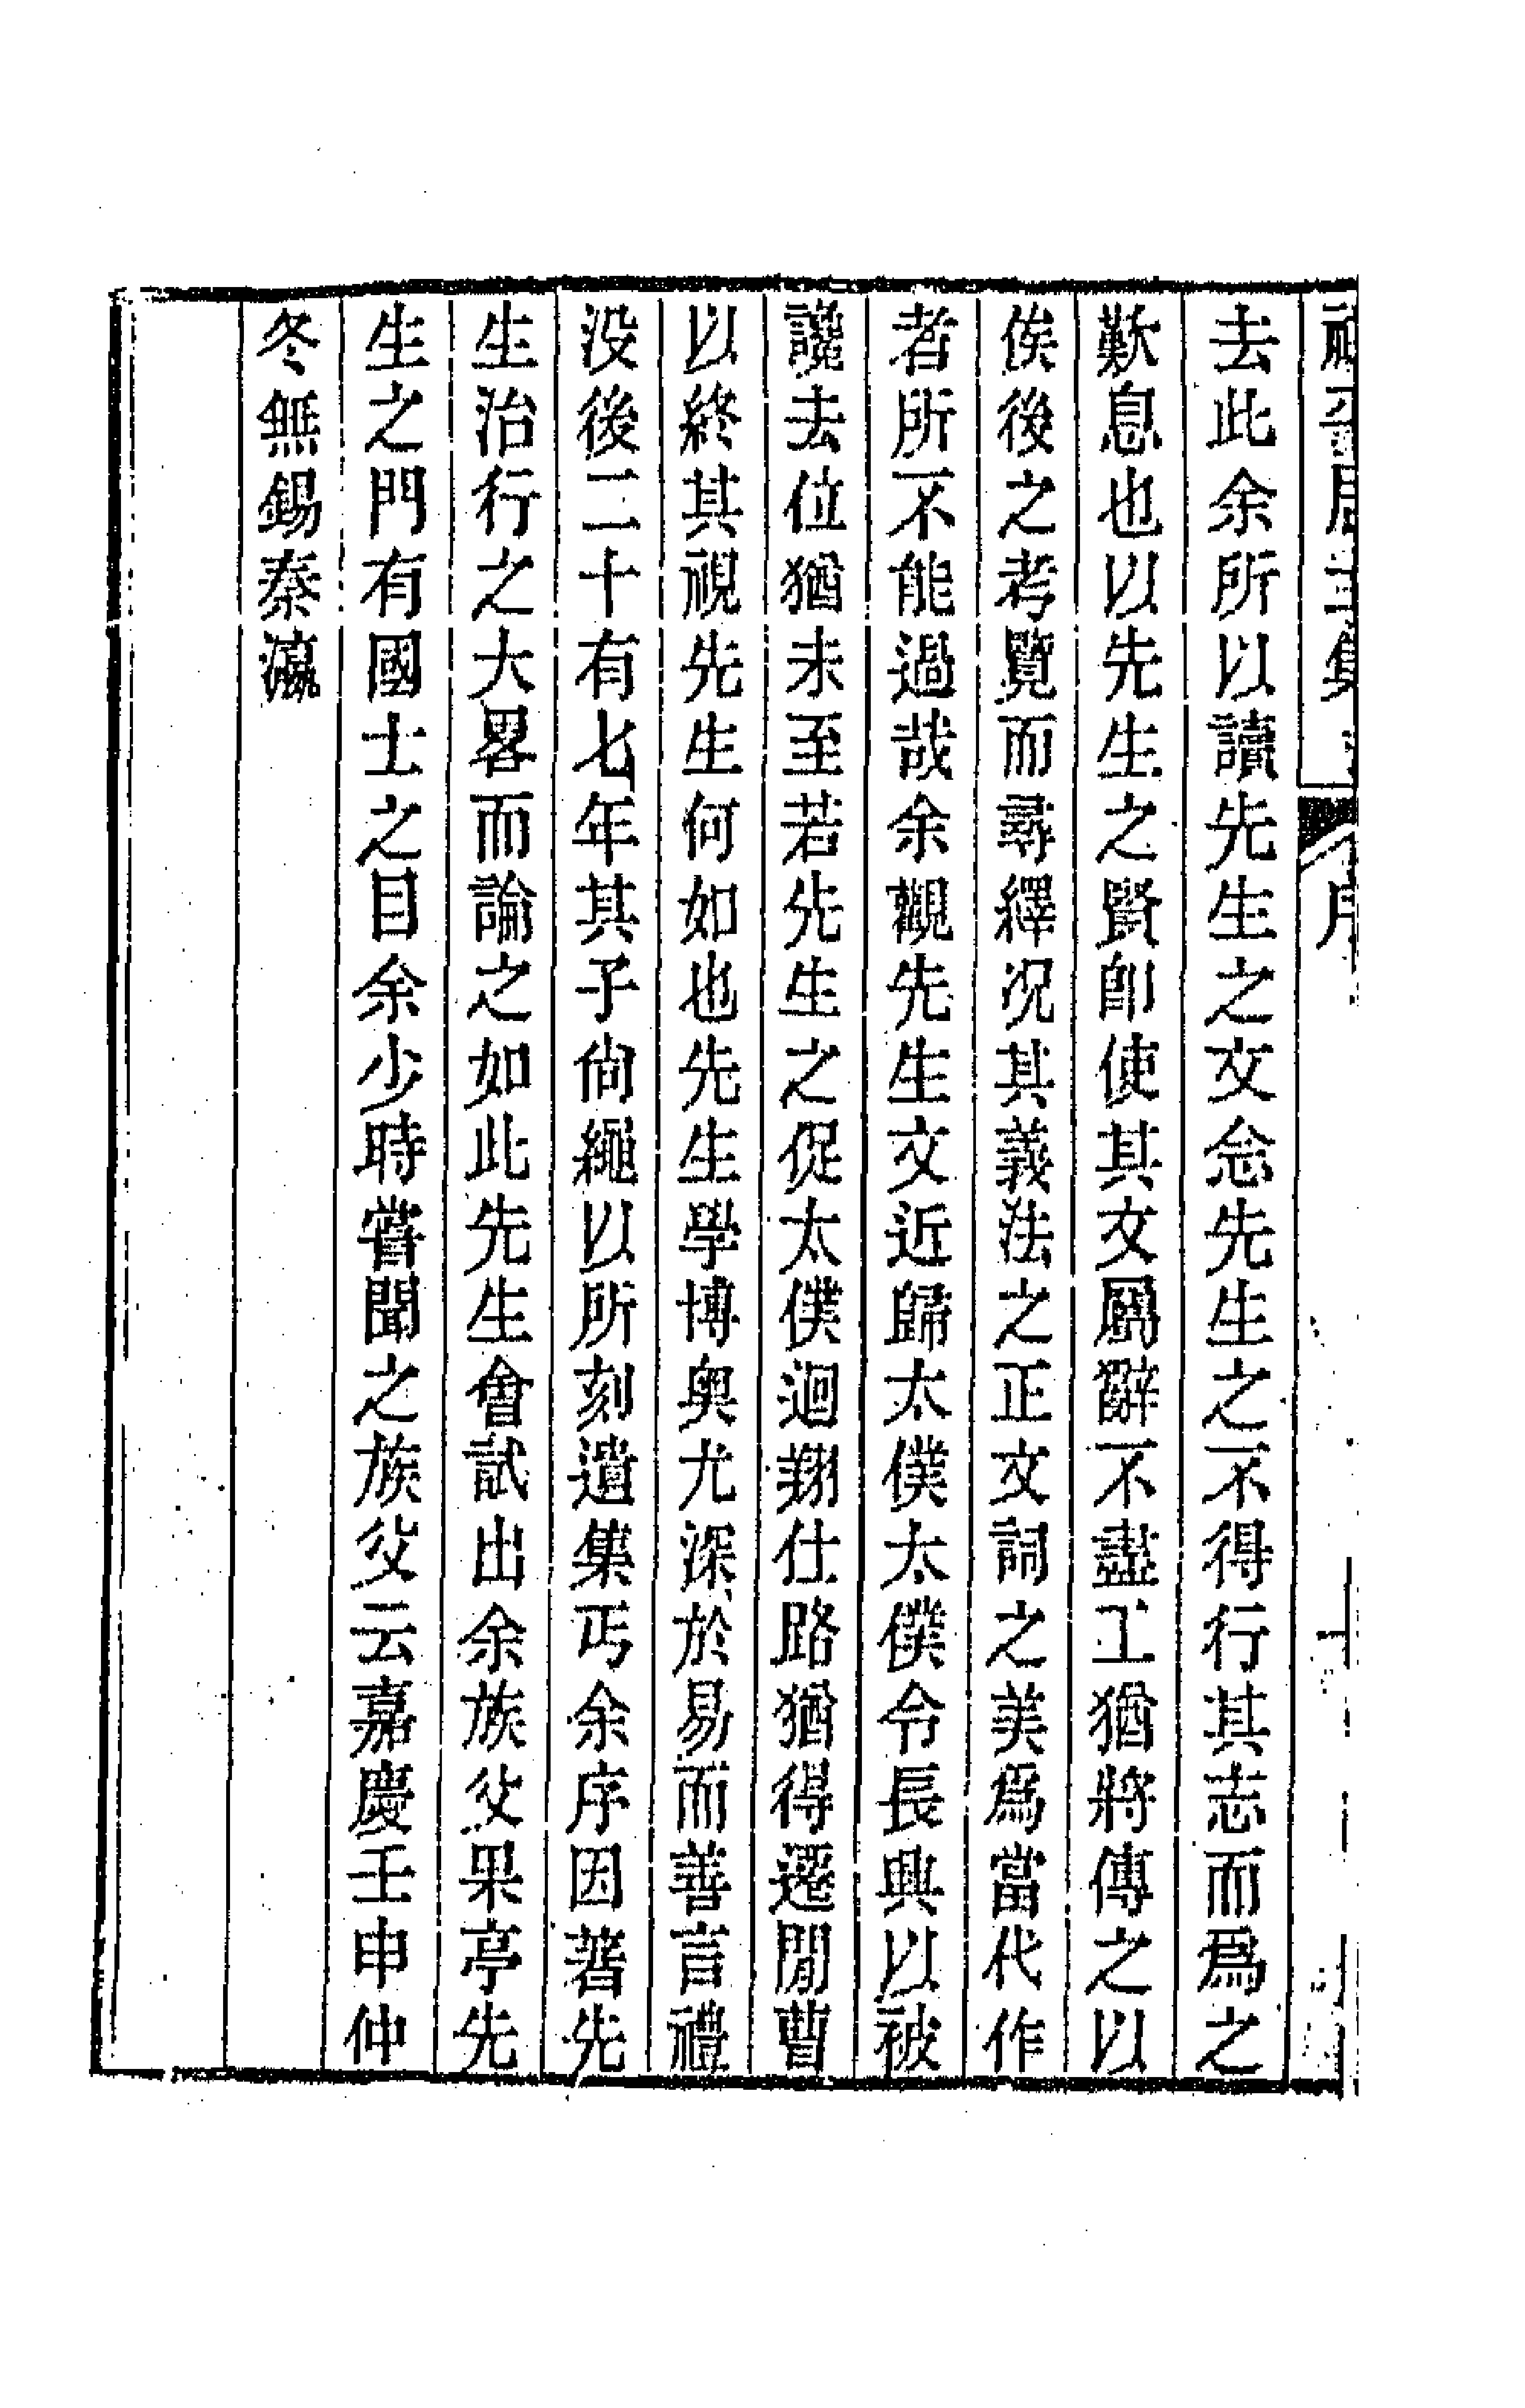 去此余所以讀先生之文念先生之不得行其志而爲之
歎息也以先生之賢卽使其文屬辭不盡工猶將傳之以
俟後之考覽而尋繹况其義法之正文詞之美爲當代作
者所不能過哉余觀先生文近歸太僕太僕令長興以被
讒去位猶未至若先生之促太僕迴翔仕路猶得遷閒曹
以終其視先生何如也先生學博奧尤深於易而善言禮
没後二十有七年其子尙繩以所刻遺集丐余序因著先
生治行之大畧而論之如此先生會試出余族父果亭先
生之門有國士之目余少時嘗聞之族父云嘉慶壬申仲
冬無錫秦瀛